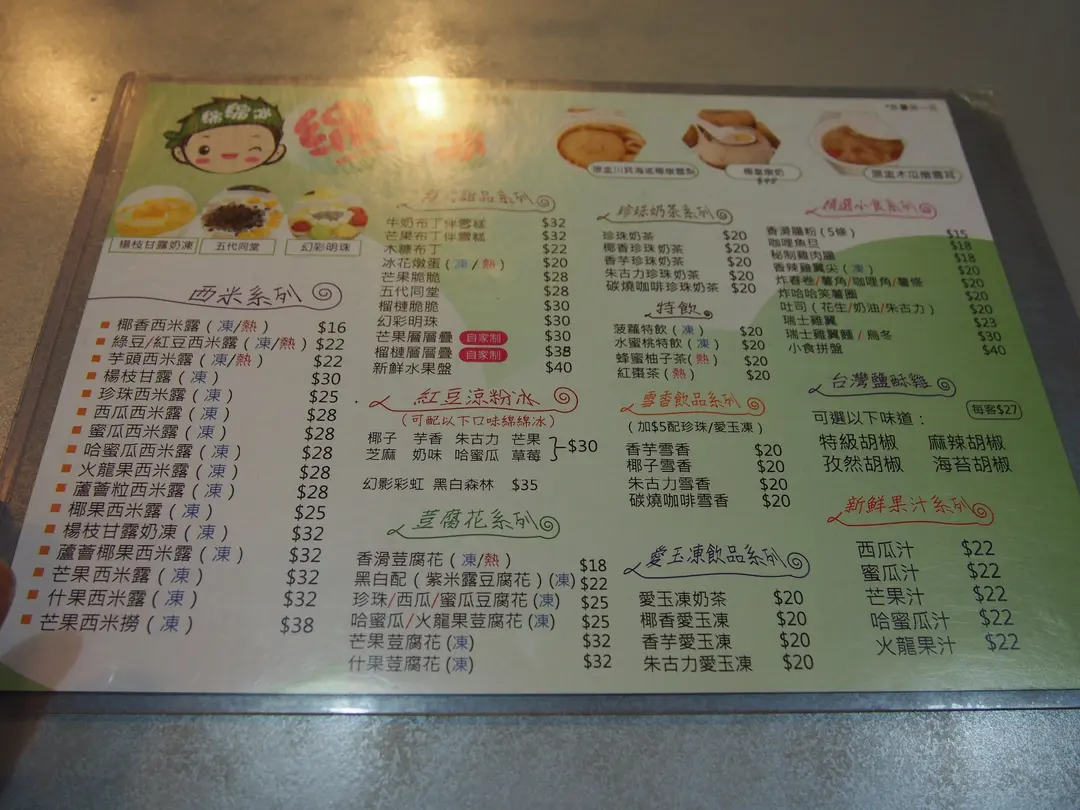 綿綿冰
綿 冰
原盅川貝海底椰燉雪梨
椰皇燉奶
$45
原盅木瓜燉雪耳
楊枝甘露奶凍
五代同堂
幻彩明珠
西米系列
椰香西米露(凍/熱) $16
綠豆/紅豆西米露(凍/熱) $22
芋頭西米露(凍/熱) $22
楊枝甘露(凍) $30
珍珠西米露(凍) $25
西瓜西米露(凍) $28
蜜瓜西米露(凍) $28
哈蜜瓜西米露(凍) $28
火龍果西米露(凍) $28
蘆薈粒西米露(凍) $28
椰果西米露(凍) $25
楊枝甘露奶凍(凍) $32
蘆薈椰果西米露(凍) $32
芒果西米露(凍) $32
什果西米露(凍) $32
芒果西米撈(凍) $38
甜品系列
牛奶布丁伴雪糕 $32
芒果布丁伴雪糕 $32
木糠布丁 $22
冰花燉蛋(凍/熱) $20
芒果脆脆 $28
五代同堂 $28
榴槤脆脆 $30
幻彩明珠 $30
芒果層層疊 自家制 $30
榴槤層層疊 自家制 $38
新鮮水果盤 $40
紅豆涼粉冰
(可配以下口味綿綿冰)
椰子 芋香 朱古力 芒果
芝麻 奶味 哈蜜瓜 草莓 $30
幻影彩虹 黑白森林 $35
荳腐花系列
香滑荳腐花(凍/熱) $18
黑白配(紫米露豆腐花)(凍) $22
珍珠/西瓜/蜜瓜豆腐花(凍) $25
哈蜜瓜/火龍果荳腐花(凍) $25
芒果荳腐花(凍) $32
什果荳腐花(凍) $32
珍珠奶茶系列
珍珠奶茶 $20
椰香珍珠奶茶 $20
香芋珍珠奶茶 $20
朱古力珍珠奶茶 $20
碳燒咖啡珍珠奶茶 $20
特飲
菠蘿特飲(凍) $20
水蜜桃特飲(凍) $20
蜂蜜柚子茶(熱) $20
紅棗茶(熱) $20
雪香飲品系列
(加$5配珍珠/愛玉凍)
香芋雪香 $20
椰子雪香 $20
朱古力雪香 $20
碳燒咖啡雪香 $20
愛玉凍飲品系列
愛玉凍奶茶 $20
椰香愛玉凍 $20
香芋愛玉凍 $20
朱古力愛玉凍 $20
精選小食系列
香滑腸粉(5條) $15
咖哩魚旦 $18
秘制雞肉腸 $18
香辣雞翼尖(凍) $20
炸春卷/薯角/咖哩角/薯條 $20
炸哈哈笑薯圈 $20
吐司(花生/奶油/朱古力) $20
瑞士雞翼 $23
瑞士雞翼麵/烏冬 $30
小食拼盤 $40
台灣鹽酥雞
每客$27
可選以下味道:
特級胡椒 麻辣胡椒
孜然胡椒 海苔胡椒
新鮮果汁系列
西瓜汁 $22
蜜瓜汁 $22
芒果汁 $22
哈蜜瓜汁 $22
火龍果汁 $22